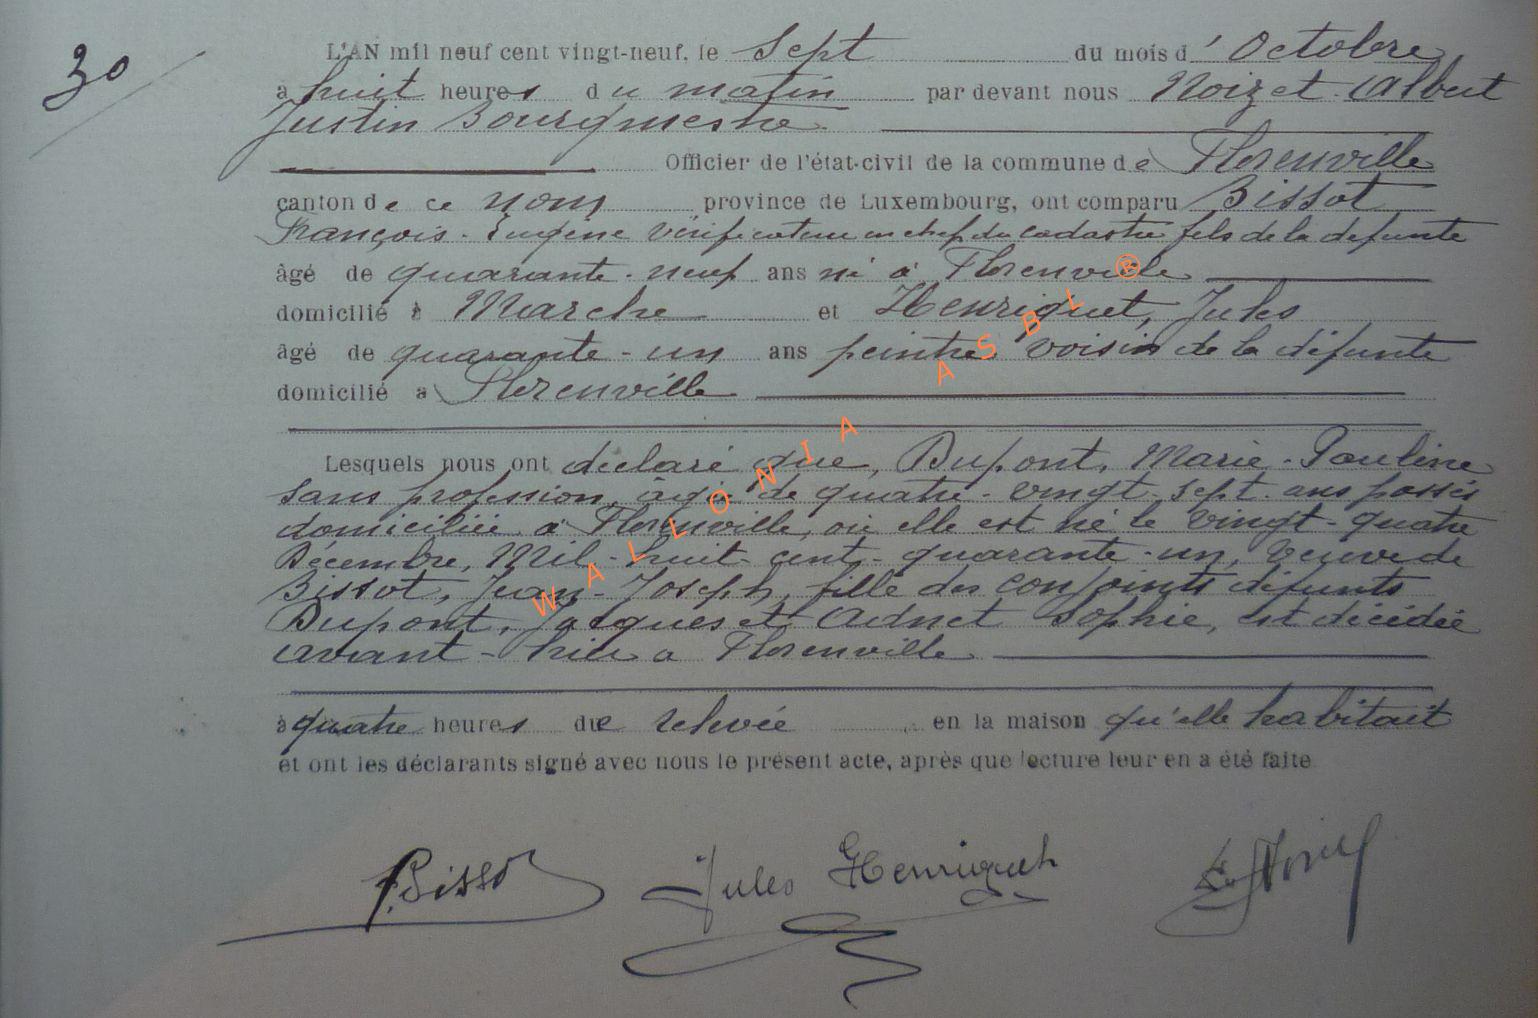 30
L'AN mil neuf cent vingt-neuf, le sept du mois d' Octobre
à huit heures du matin par devant nous Noizet Albert
Justin Bourgmestre
Officier de l'état-civil de la commune de Florenville
canton de ce nom province de Luxembourg, ont comparu Bissot
François-Eugène vérificateur en chef du cadastre fils de la défunte
âgé de quarante-neuf ans né à Florenville
domicilié à Marche et Henriquet, Jules
âgé de quarante-un ans peintre voisin de la défunte
domicilié à Florenville
Lesquels nous ont déclaré que, Dupont, Marie-Pauline
sans profession, âgée de quatre-vingt-sept ans passés
domiciliée à Florenville, où elle est né le vingt-quatre
Décembre, Mil-huit-cent-quarante-un, Veuve de
Bissot, Jean-Joseph, fille des conjoints défunts
Dupont, Jacques et Adnet Sophie, est décédée
avant-hier à Florenville
à quatre heures de relevée en la maison qu'elle habitait
et ont les déclarants signé avec nous le présent acte, après que lecture leur en a été faite
F. Bissot Jules Henriquet
WALLONIA ASBL ®